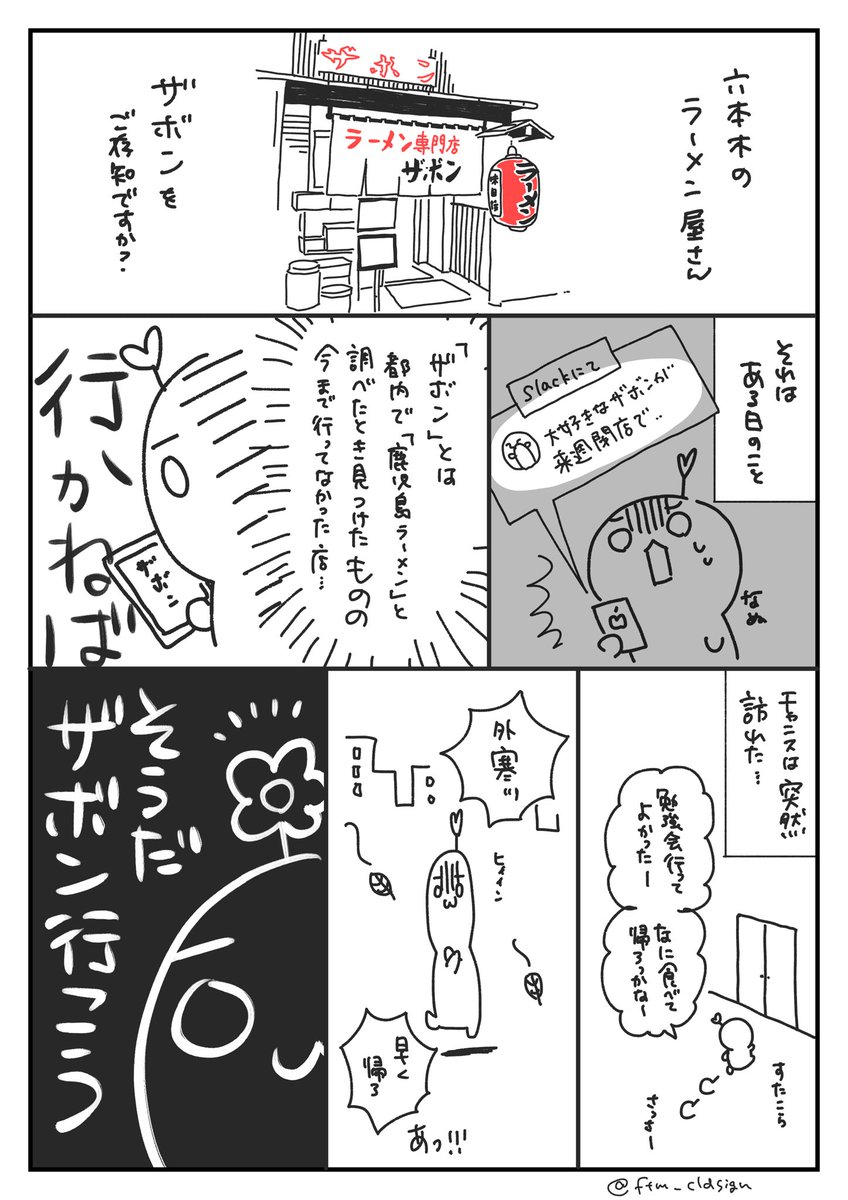 六本木の
ラーメン屋さん
ザボン
ラーメン専門店
ザボン
ラーメン
味自慢
ザボンを
ご存知ですか?
それは
ある日のこと
slackにて
大好きなザボンが
来週閉店で‥
なぬ
「ザボン」とは
都内で「鹿児島ラーメン」と
調べたとき見つけたものの
今まで行ってなかった店…
ザボン
行かねば
チャンスは突然
訪れた…
勉強会行って
よかったー
なに食べて
帰ろっかなー
すたこら
さっさー
外寒ッ
ヒィィン
早く
帰ろ
あっ!!!
そうだ
ザボン行こう
@ftm_cldsign